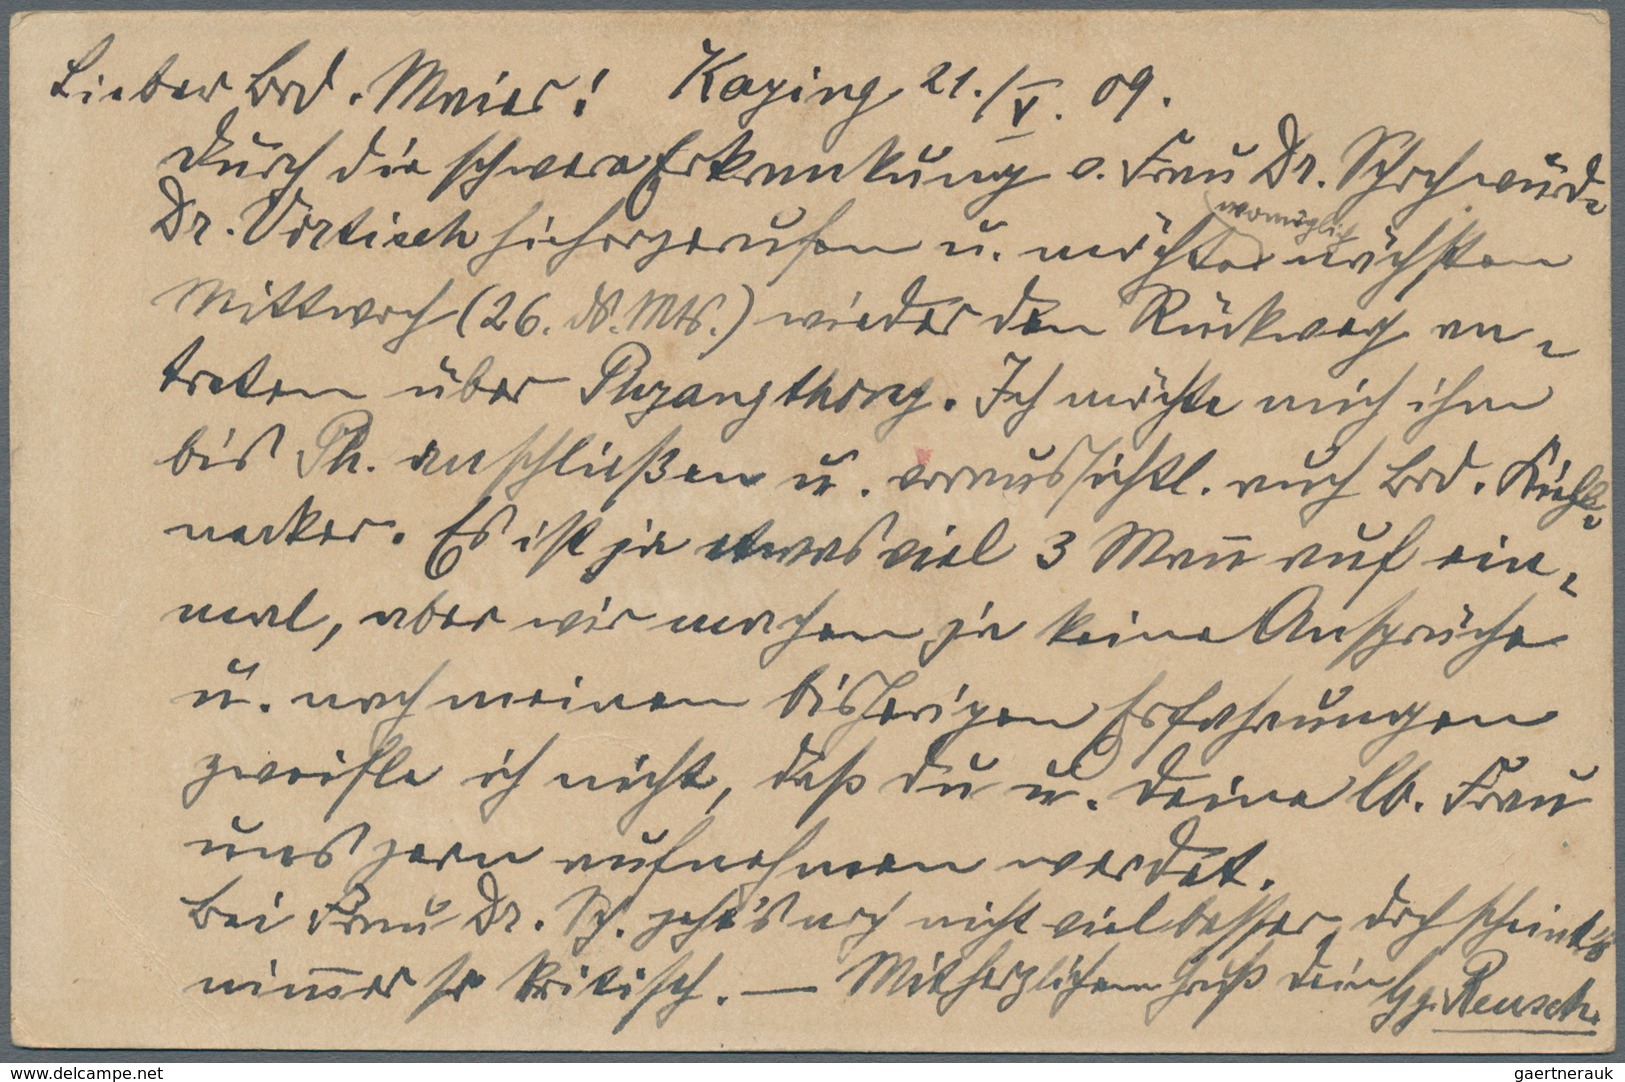 Lieber Brd. Maier! Kaying 21./V. 09.
Durch die schwere Erkrankung v. Frau Dr. Schoch wurde
Dr. Vortisch hierhergerufen u. möchte womöglich nächsten
Mittwoch (26. ds. Mts.) wieder den Rückweg an-
treten über Phyangthong. Ich möchte mich ihm
bis Ph. anschließen u. voraussichtl. auch Brd. Kühl-
necker. Es ist ja etwas viel 3 Mann auf ein-
mal, aber wir machen ja keine Ansprüche
u. nach meinen bisherigen Erfahrungen
zweifle ich nicht, daß du u. deine lb. Frau
uns gern aufnehmen werdet.
Bei Frau Dr. Sch. geht's noch nicht viel besser, doch scheint's
nimmer so kritisch. — Mit herzlichem Gruß dein Gg. Reusch.
delcampe.net
gaertnerauk